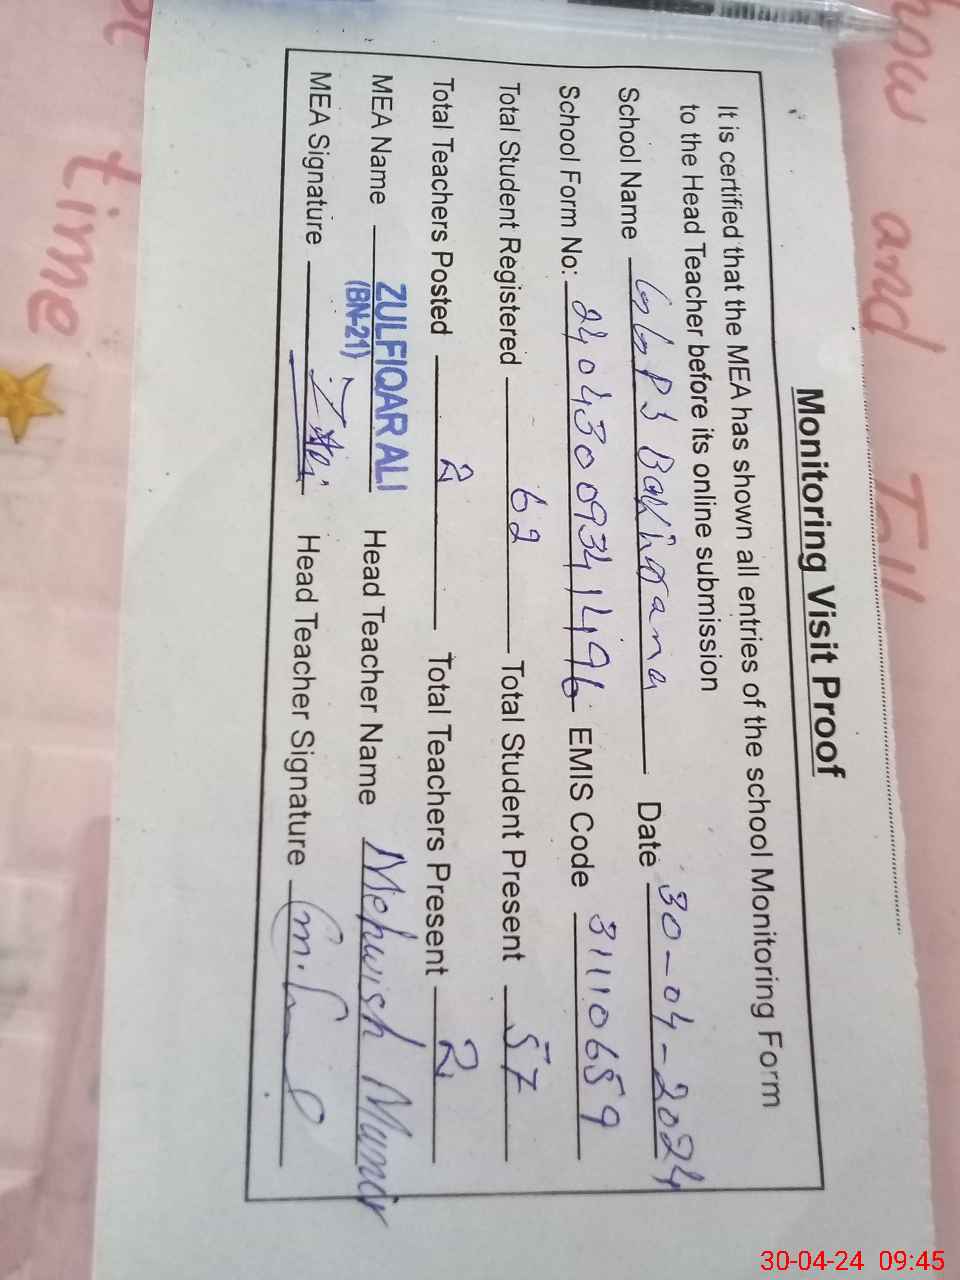 how and Tell
time
Monitoring Visit Proof
It is certified that the MEA has shown all entries of the school Monitoring Form
to the Head Teacher before its online submission
School Name GGPS Bakhrana Date 30-04-2024
School Form No: 24043009341496 EMIS Code 31110659
Total Student Registered 62 Total Student Present 57
Total Teachers Posted 2 Total Teachers Present 2
MEA Name ZULFIQAR ALI Head Teacher Name Mehwish Munir
(BN-21)
MEA Signature Head Teacher Signature
30-04-24 09:45